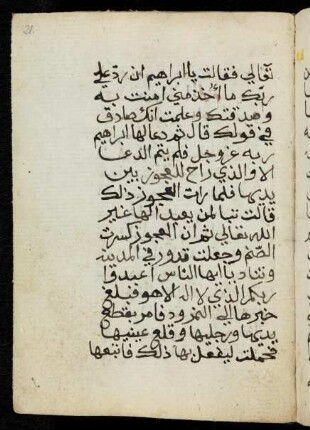 21
تعالي فقالت يا ابراهيم ان رد علي
ربك ما أخذ مني امنت به
وصدقتك وعلمت انك صادق
في قولك قال ثم دعا لها ابراهيم
ربه عز وجل فلم يتم الدعا
الا والذي راح للعجوز بين
يديها فلما رات العجوز ذلك
قالت تبا لمن يعبد الها غير
الله تعالي ثم ان العجوز كسرت
الصنم وجعلت تدور في المدينة
وتناد يا ايها الناس اعبدوا
ربكم الذي لا اله الا هو فبلغ
خبرها الي النمرود فامر بقطع
يديها ورجليها وقلع عينيها
فحملت ليفعل بها ذلك فاتبعها